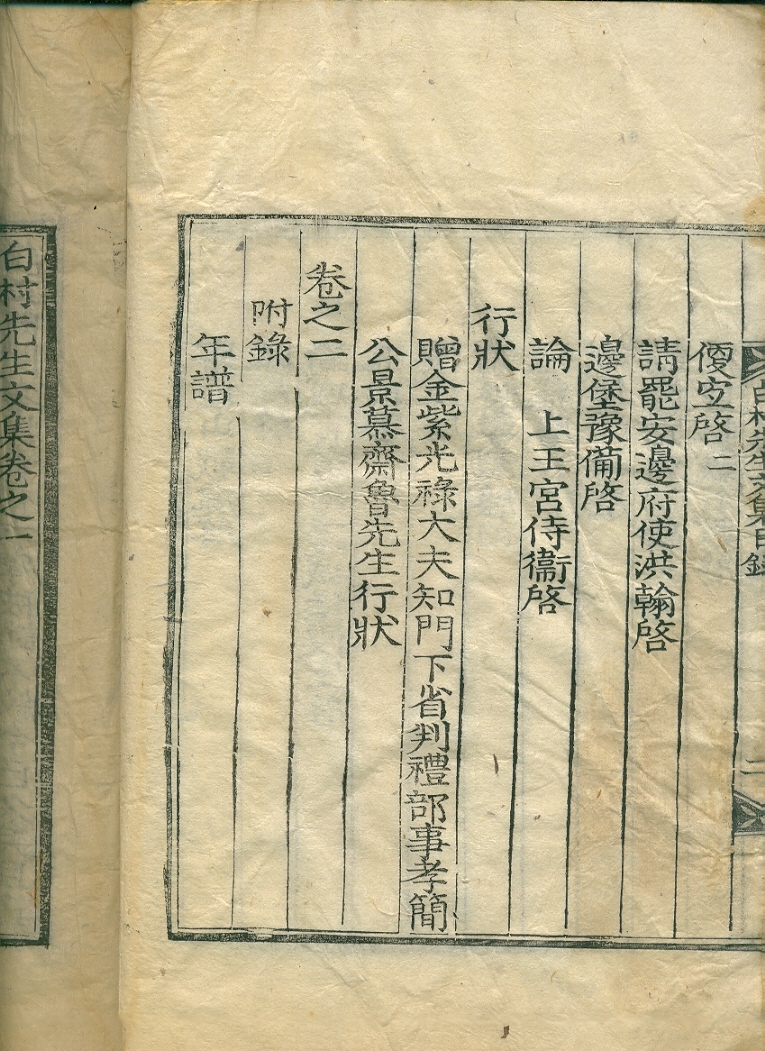 白村先生文集目錄
二
便宜啓二
請罷安邊府使洪翰啓
邊堡豫備啓
論 上王宮侍衞啓
行狀
贈金紫光祿大夫知門下省判禮部事孝簡
公景慕齋魯先生行狀
卷之二
附錄
年譜
白村先生文集卷之一